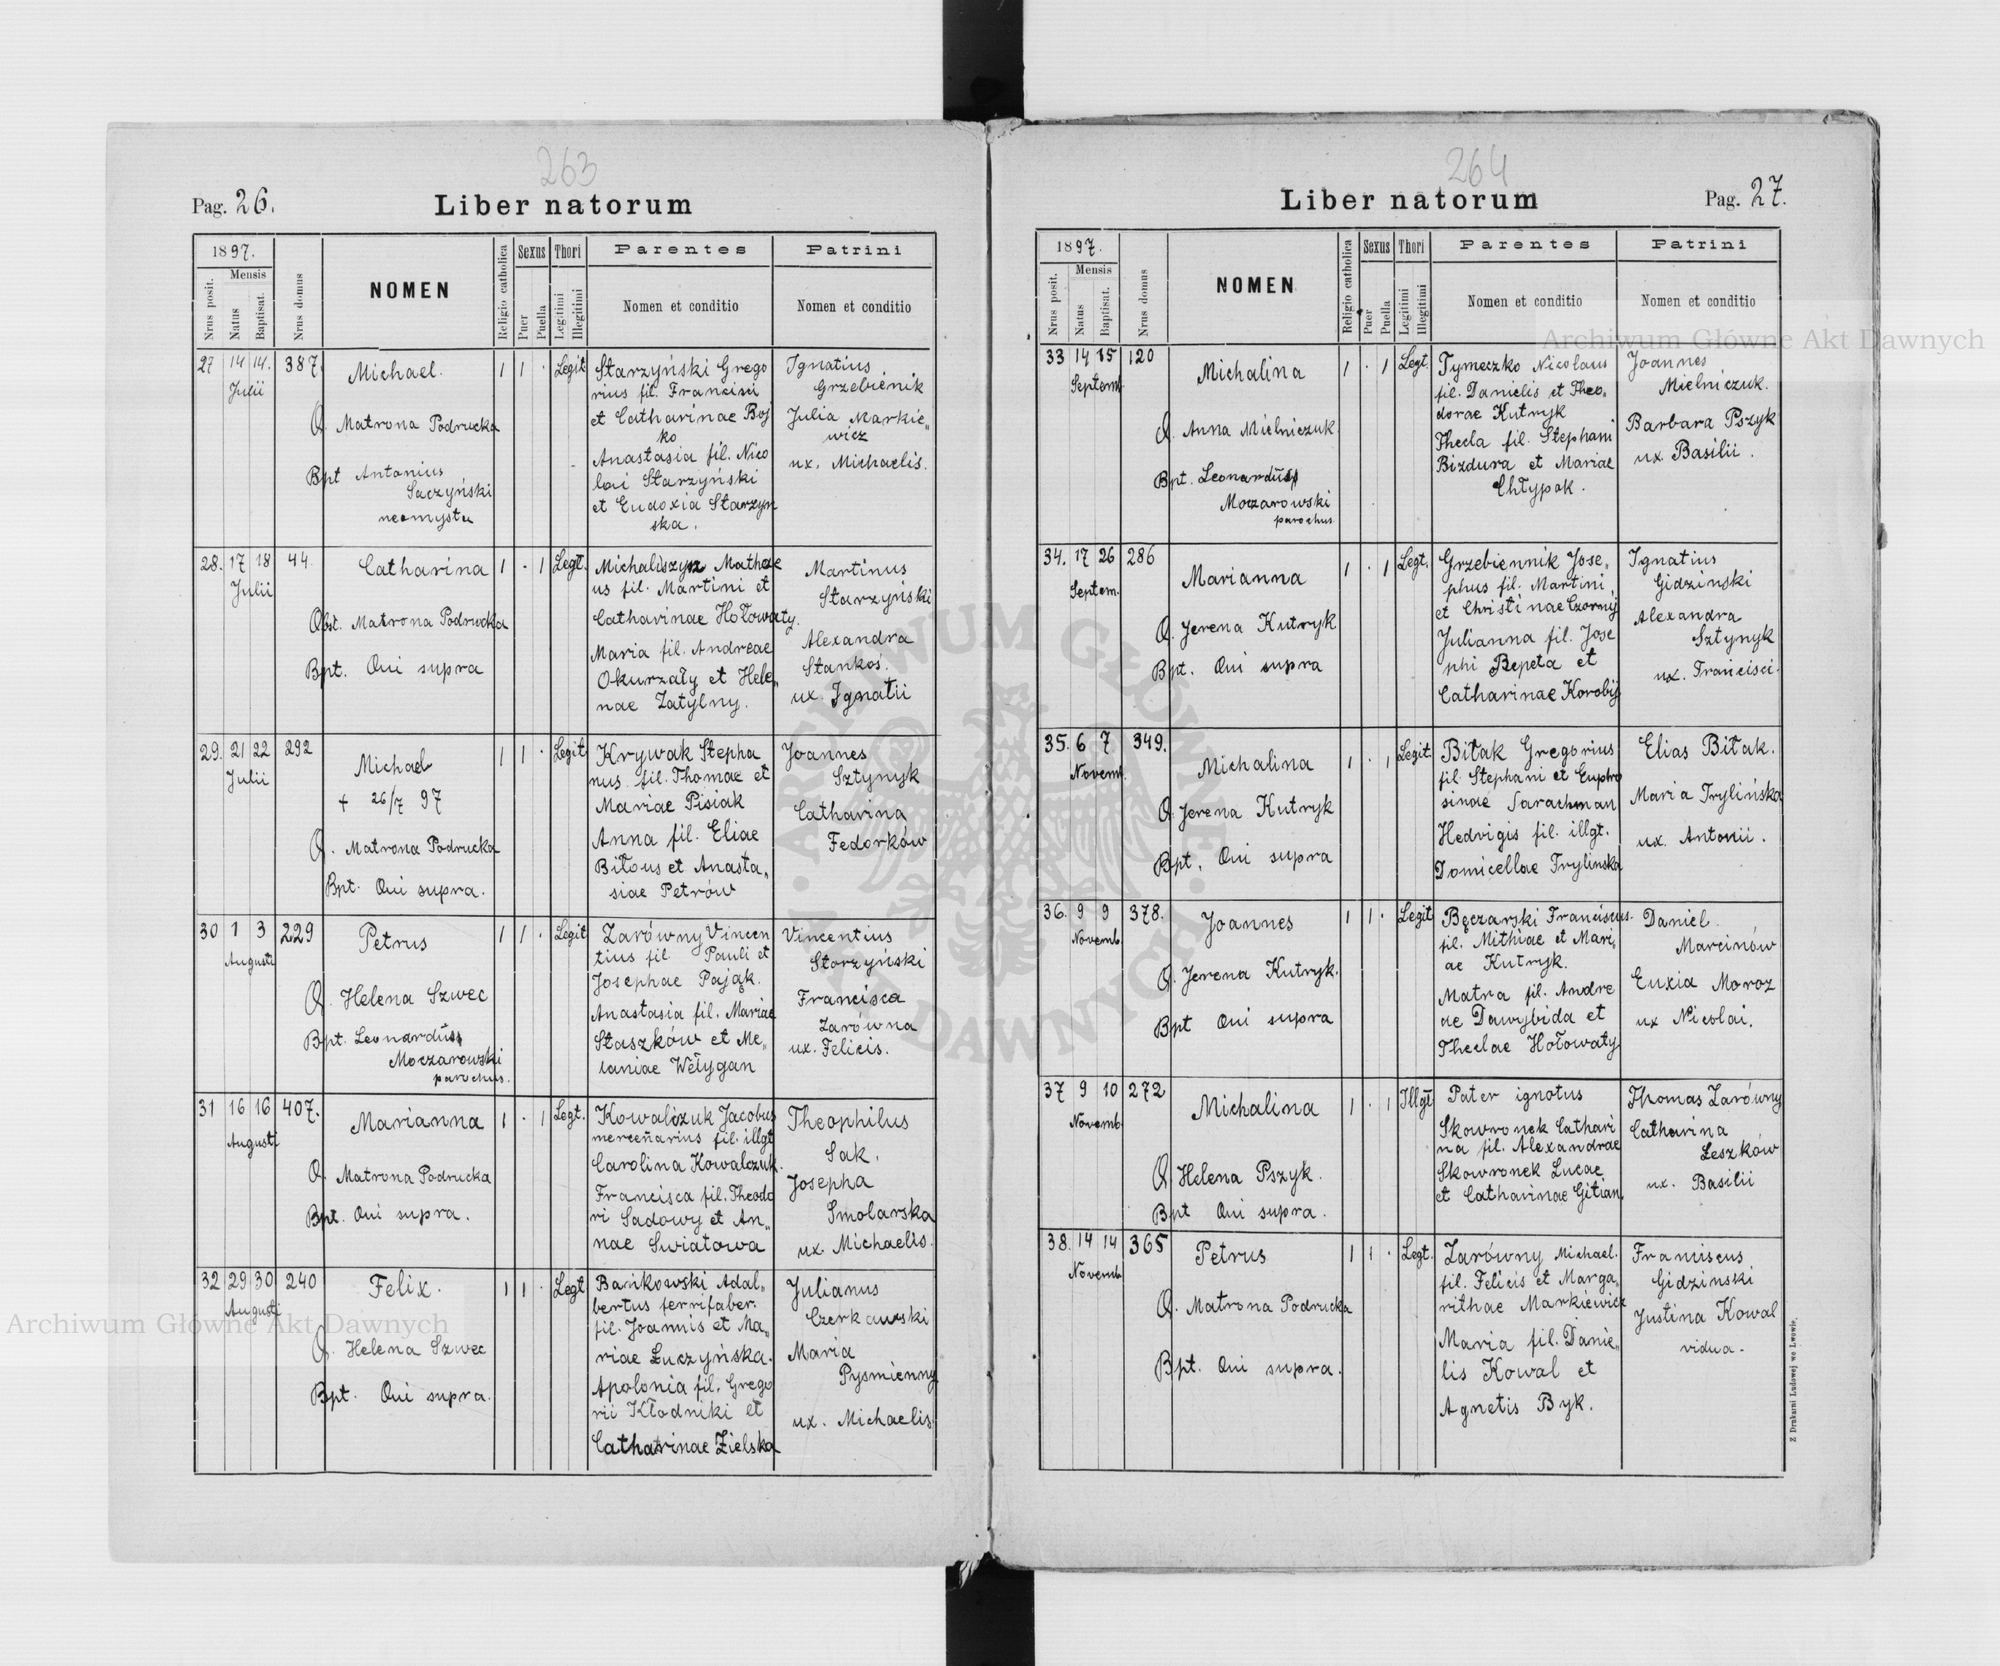 263
Pag. 26.
Liber natorum
1897.
Mensis
Nrus posit.
Natus
Baptisat.
Nrus domus
NOMEN
Religio catholica
Sexus
Puer
Puella
Thori
Legitimi
Illegitimi
Parentes
Nomen et conditio
Patrini
Nomen et conditio
27 14 14. 387.
Julii
Michael.
O. Matrona Podrucka
Bpt Antonius
Saczyński
neomysta
1 1 . Legit
Starzyński Grego
rius fil. Francisci
et Catharinae Boj
ko
Anastasia fil. Nico
lai Starzyński
et Eudoxia Starzyn
ska.
Ignatius
Grzebienik
Julia Markie„
wicz
ux. Michaelis.
28. 17 18 44.
Julii
Catharina
Obst. Matrona Podrucka
Bpt. Qui supra
1 . 1 Legt.
Michaliszyn Mathae
us fil. Martini et
Catharinae Hołowaty.
Maria fil. Andreae
Okurzały et Hele„
nae Zatylny.
Martinus
Starzyński
Alexandra
Stankoś.
ux. Ignatii
29. 21 22 292
Julii
Michael
+ 26/7 97
O. Matrona Podrucka
Bpt. Qui supra.
1 1 . Legit
Krywak Stepha
nus fil. Thomae et
Mariae Pisiak
Anna fil. Eliae
Bitous et Anasta„
siae Petrów
Joannes
Sztynyk
Catharina
Fedorków
30 1 3 229
Augusti
Petrus
O. Helena Szwec
Bpt. Leonardus
Moczarowski
parochus.
1 1 . Legit
Zarówny Vincen
tius fil Pauli et
Josephae Pająk.
Anastasia fil. Mariae
Staszków et Me„
laniae Wełygan
Vincentius
Starzyński
Francisca
Zarówna
ux. Felicis.
31 16 16 407.
Augusti
Marianna
O. Matrona Podrucka
Bpt. Qui supra.
1 . 1 Legt.
Kowalczuk Jacobus
mercenarius fil. illgt
Carolina Kowalczuk.
Francisca fil. Theodo
ri Sadowy et An„
nae Swiatowa
Theophilus
Sak.
Josepha
Smolarska
ux. Michaelis.
32 29 30 240
Augusti
Felix.
O. Helena Szwec
Bpt. Qui supra.
1 1 . Legt
Bańkowski Adal„
bertus ferrifaber.
fil. Joannis et Ma„
riae Łuczyńska.
Apolonia fil. Grego
rii Kłodniki et
Catharinae Zielska
Julianus
Czerkawski
Maria
Pysmienny
ux. Michaelis
264
Liber natorum
Pag. 27.
1897.
Mensis
Nrus posit.
Natus
Baptisat.
Nrus domus
NOMEN
Religio catholica
Sexus
Puer
Puella
Thori
Legitimi
Illegitimi
Parentes
Nomen et conditio
Patrini
Nomen et conditio
33 14 15 120
Septem.
Michalina
O. Anna Mielniczuk
Bpt. Leonardus
Moczarowski
parochus
1 . 1 Legt.
Tymeczko Nicolaus
fil. Danielis et Theo„
dorae Kutryk
Thecla fil. Stephani
Bizdura et Mariae
Chłypak.
Joannes
Mielniczuk.
Barbara Pszyk
ux. Basilii.
34. 17 26 286
Septem.
Marianna
O. Jerena Kutryk
Bpt. Qui supra
1 . 1 Legt.
Grzebiennik Jose„
phus fil. Martini
et Christinae Czornij
Julianna fil. Jose
phi Bepeta et
Catharinae Korobij
Ignatius
Gidzinski
Alexandra
Sztynyk
ux. Francisci.
35. 6 7 349.
Novemb.
Michalina
O. Jerena Kutryk
Bpt. Qui supra
1 . 1 Legit.
Bitak Gregorius
fil. Stephani et Euphro
sinae Sarachman
Hedvigis fil. illgt.
Domicellae Trylinska
Elias Bitak.
Maria Trylińska
ux. Antonii.
36. 9 9 378.
Novemb.
Joannes
O. Jerena Kutryk.
Bpt Qui supra
1 1 . Legit
Bęczarski Franciscus.
fil. Mithiae et Mari„
ae Kutryk.
Matra fil. Andre
ae Dawybida et
Theclae Hołowaty
Daniel.
Marcinów
Euxia Moroz
ux Nicolai.
37 9 10 272
Novemb
Michalina
O. Helena Pszyk.
Bpt Qui supra.
1 . 1 Illgt
Pater ignotus
Skowronek Cathari
na fil. Alexandrae
Skowronek Lucae
et Catharinae Gitian.
Thomas Zarówny
Catharina
Leszków
ux. Basilii
38. 14 14 365
Novemb
Petrus
O. Matrona Podrucka
Bpt. Qui supra.
1 1 . Legt.
Zarówny Michael.
fil. Felicis et Marga„
rithae Markiewicz
Maria fil. Danie„
lis Kowal et
Agnetis Byk.
Franciscus
Gidzinski
Justina Kowal
vidua.
Z Drukarni Ludowej we Lwowie.
Archiwum Główne Akt Dawnych
Archiwum Główne Akt Dawnych
ARCHIWUM GŁÓWNE AKT DAWNYCH